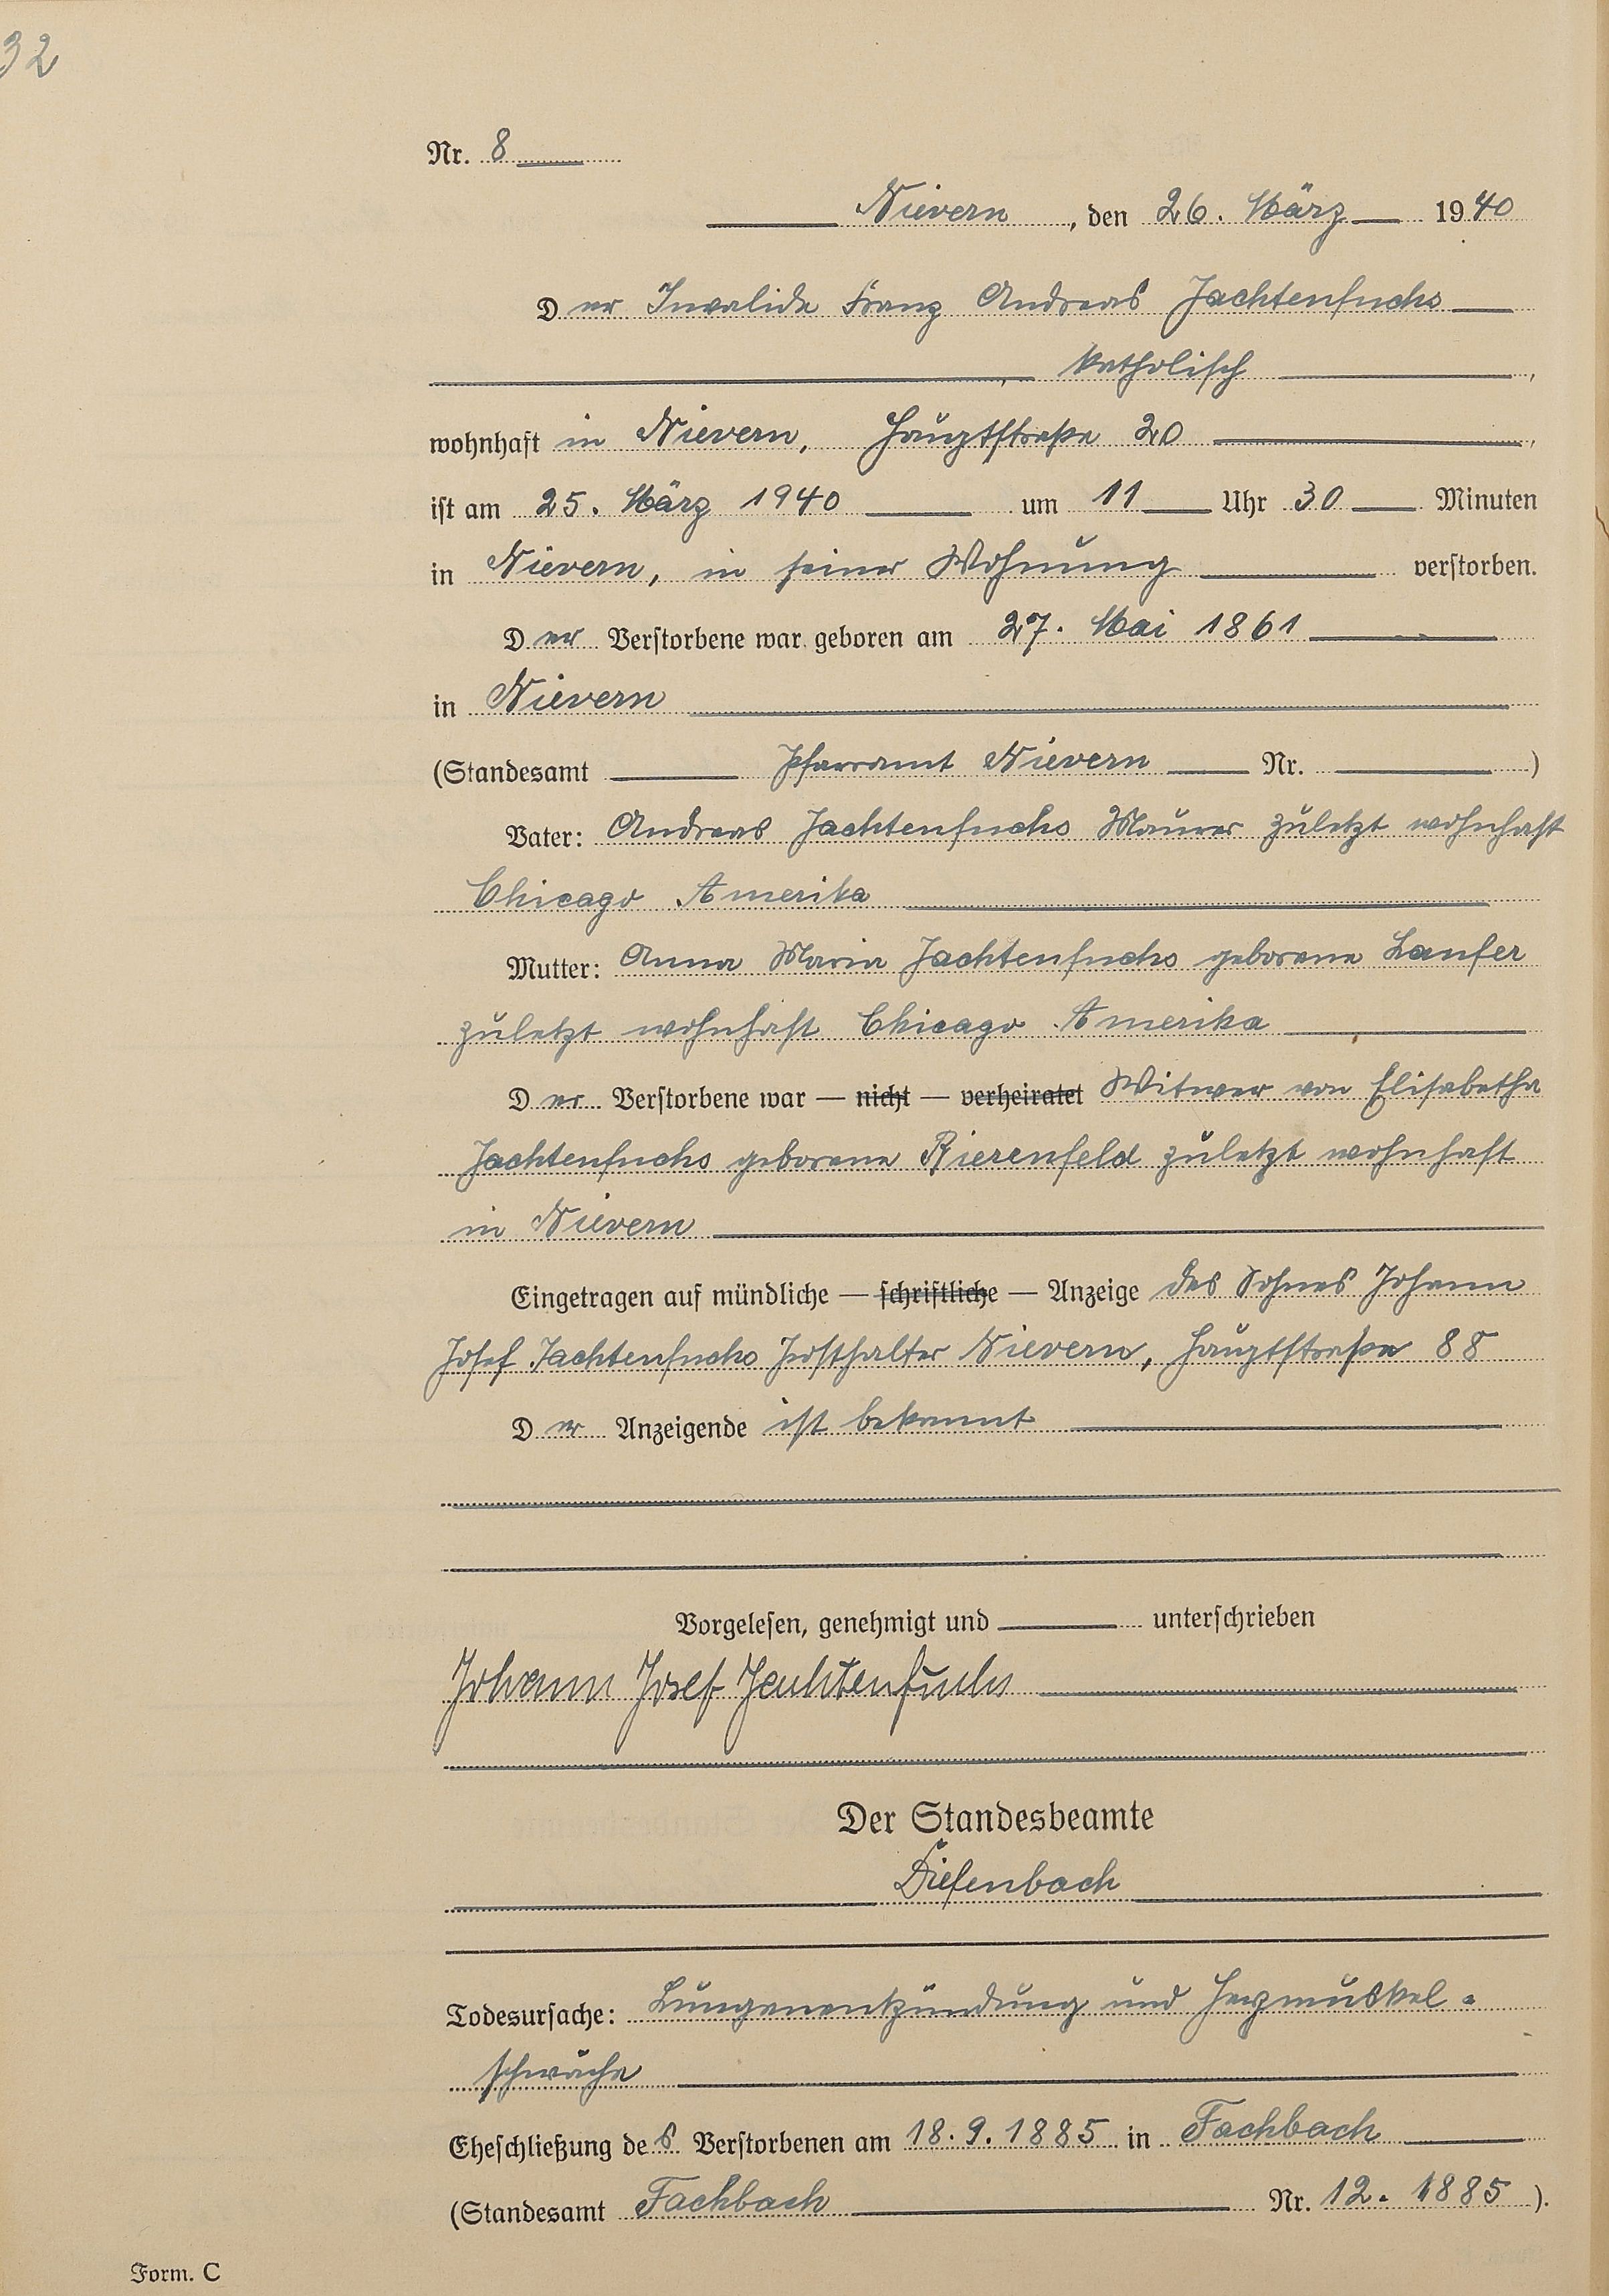 32
Nr. 8
Nievern, den 26. März 1940
Der Invalide Franz Andreas Jachtenfuchs
, katholisch,
wohnhaft in Nievern, Hauptstraße 20,
ist am 25. März 1940 um 11 Uhr 30 Minuten
in Nievern, in seiner Wohnung verstorben.
Der Verstorbene war geboren am 27. Mai 1861
in Nievern
(Standesamt Pfarramt Nievern Nr. )
Vater: Andreas Jachtenfuchs Maurer zuletzt wohnhaft
Chicago Amerika
Mutter: Anna Maria Jachtenfuchs geborene Laufer
zuletzt wohnhaft Chicago Amerika
Der Verstorbene war — nicht — verheiratet Witwer von Elisabetha
Jachtenfuchs geborene Bierenfeld zuletzt wohnhaft
in Nievern
Eingetragen auf mündliche — schriftliche — Anzeige des Sohnes Johann
Josef Jachtenfuchs Posthalter Nievern, Hauptstraße 88
Der Anzeigende ist bekannt
Vorgelesen, genehmigt und unterschrieben
Johann Josef Jachtenfuchs
Der Standesbeamte
Diefenbach
Todesursache: Lungenentzündung und Herzmuskel-
schwäche
Eheschließung des Verstorbenen am 18.9.1885 in Fachbach
(Standesamt Fachbach Nr. 12. 1885).
Form. C